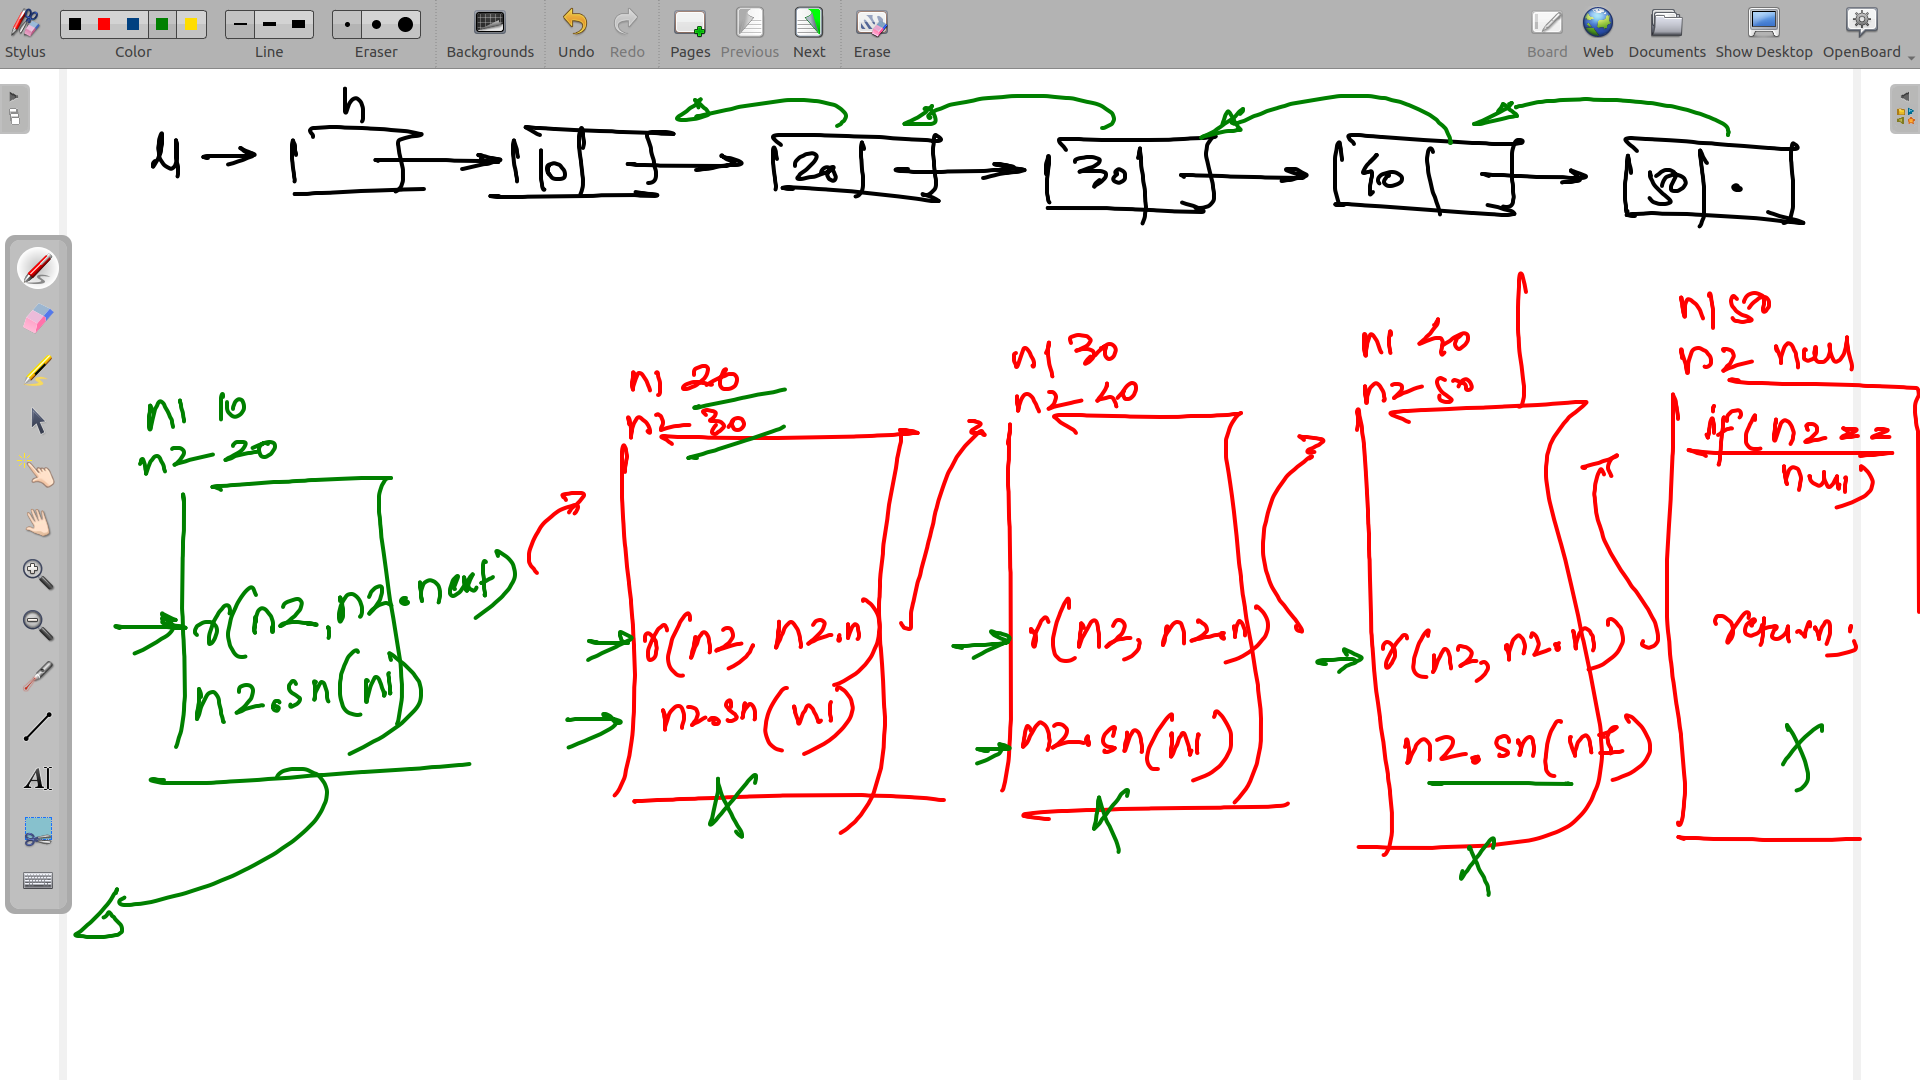 Stylus
Color
Line
Eraser
Backgrounds
Undo
Redo
Pages
Previous
Next
Erase
Board
Web
Documents
Show Desktop
OpenBoard
h
ll
10
20
30
40
50
n1 10
n2 20
r(n2, n2.next)
n2.sn(n1)
n1 20
n2 30
r(n2, n2.n)
n2.sn(n1)
n1 30
n2 40
r(n2, n2.n)
n2.sn(n1)
n1 40
n2 50
r(n2, n2.n)
n2.sn(n1)
n1 50
n2 null
if(n2 ==
null)
return;
AI